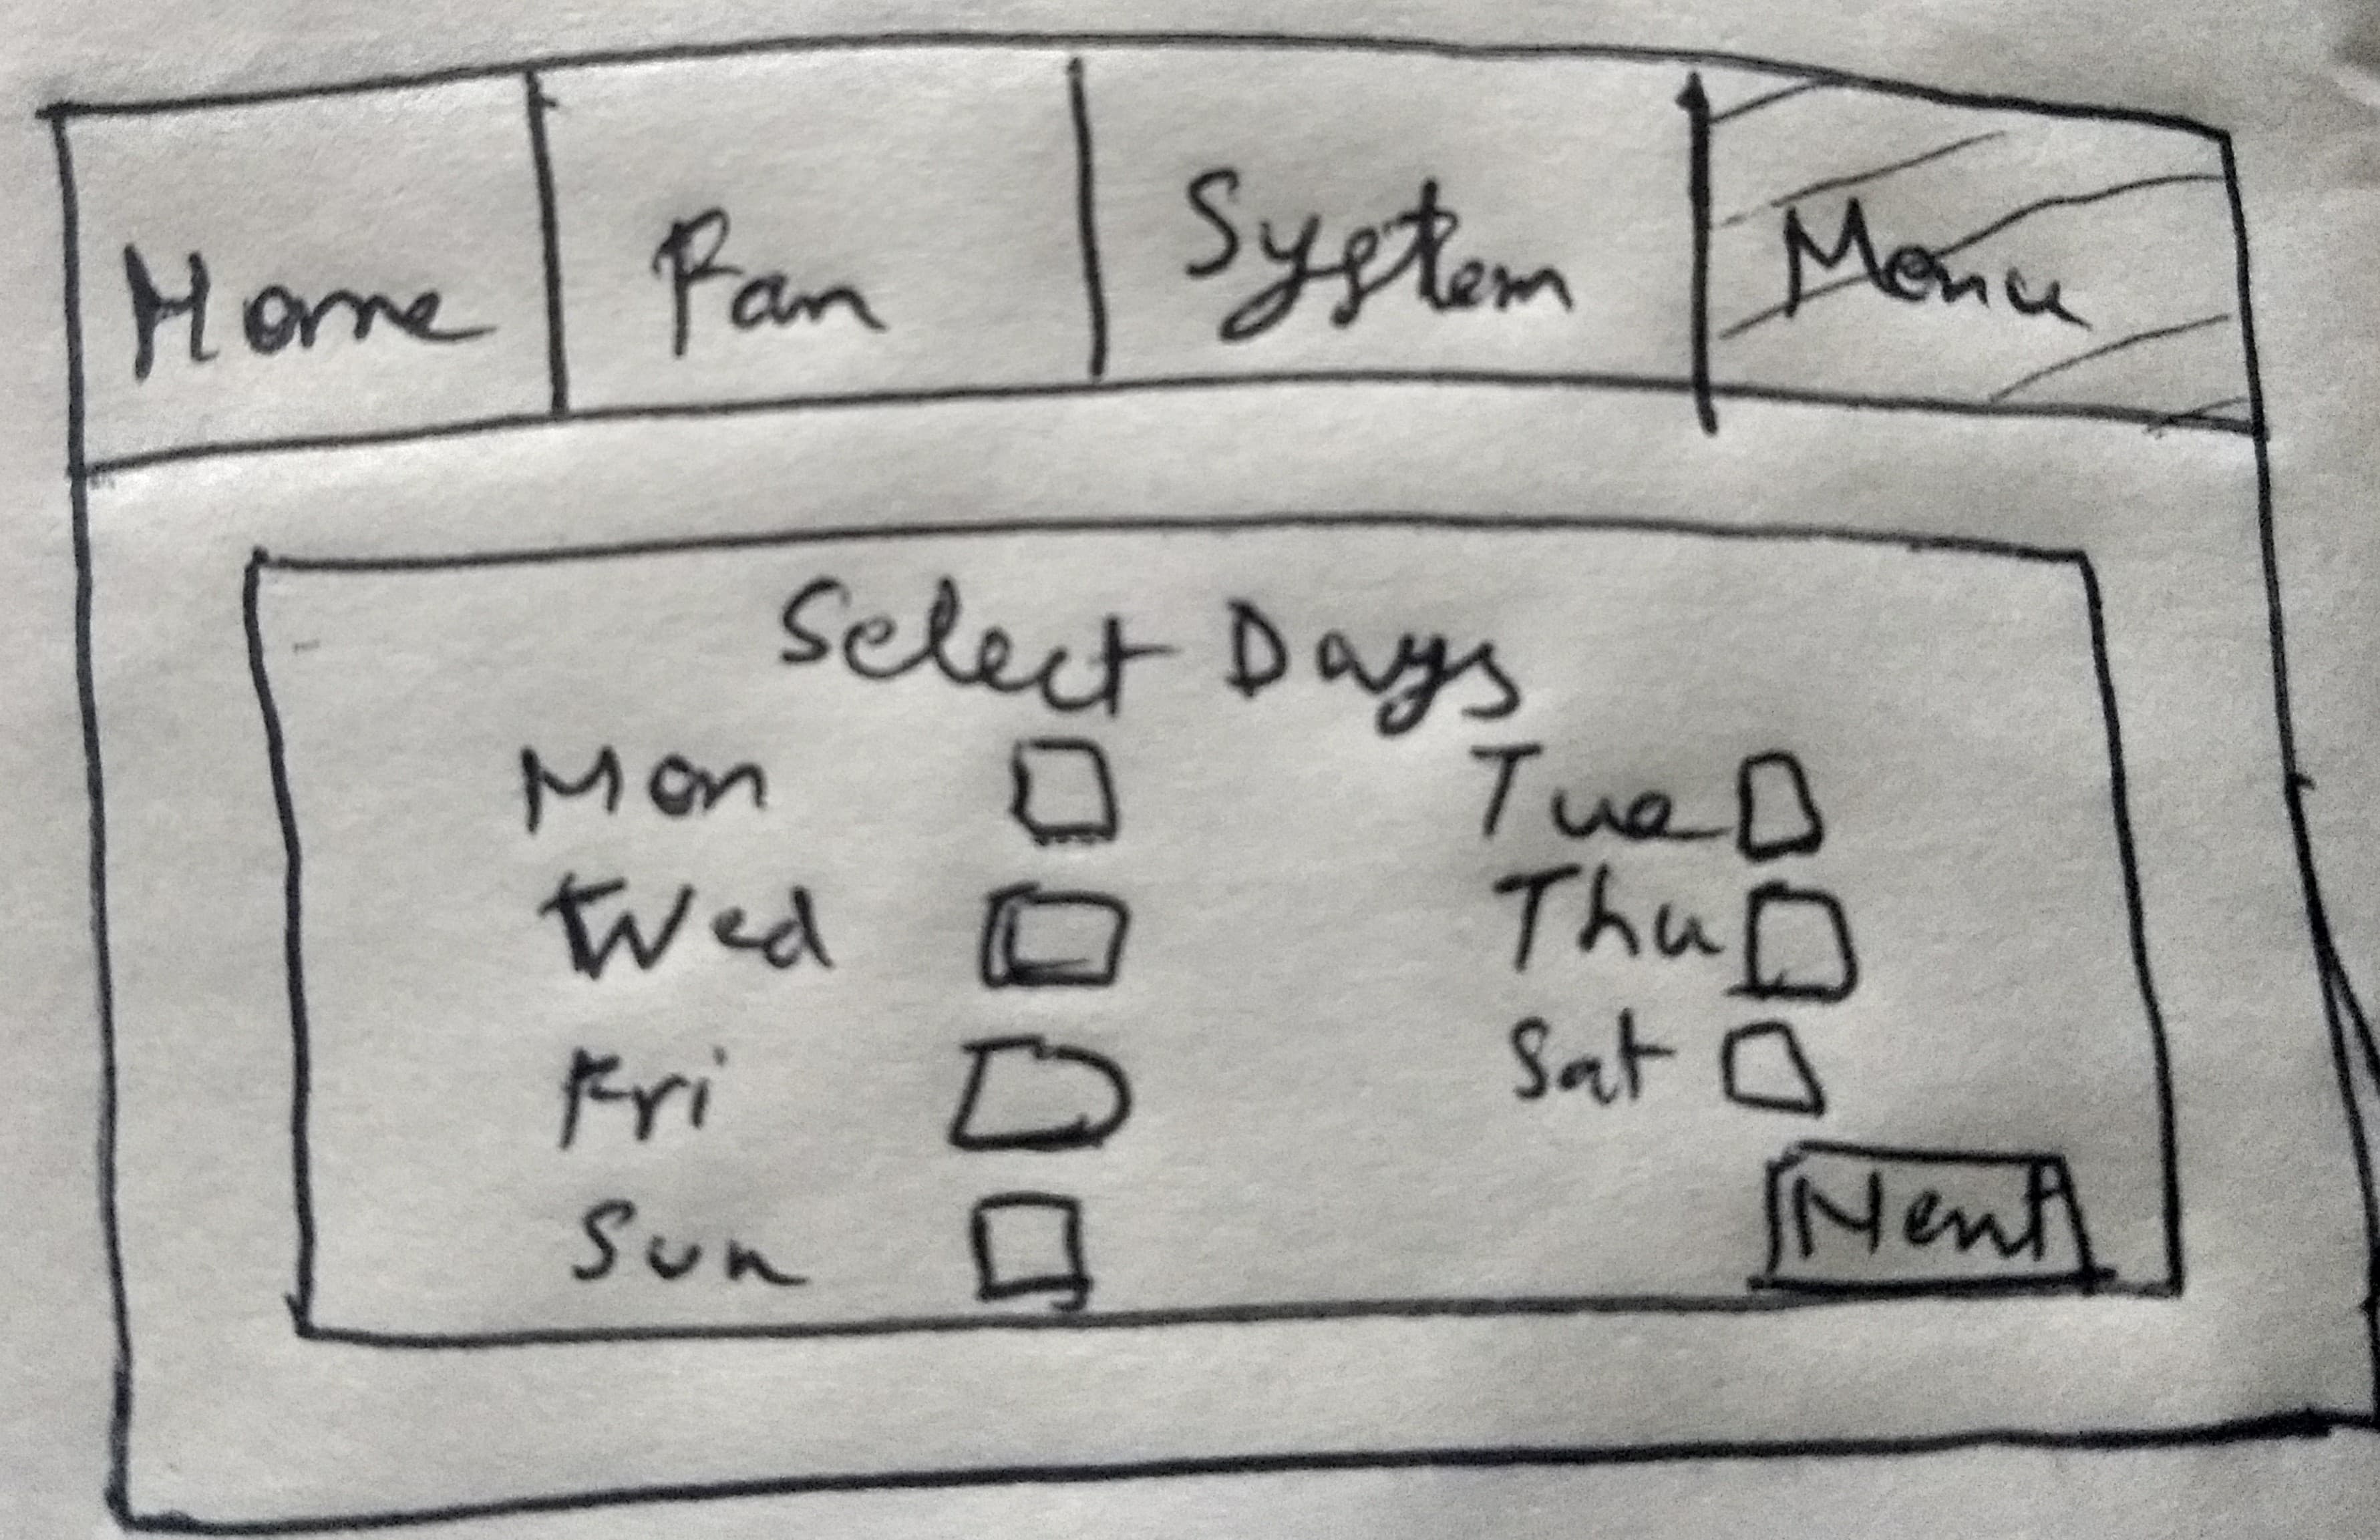 Home Fan System Menu
Select Days
Mon Tue
Wed Thu
Fri Sat
Sun Next